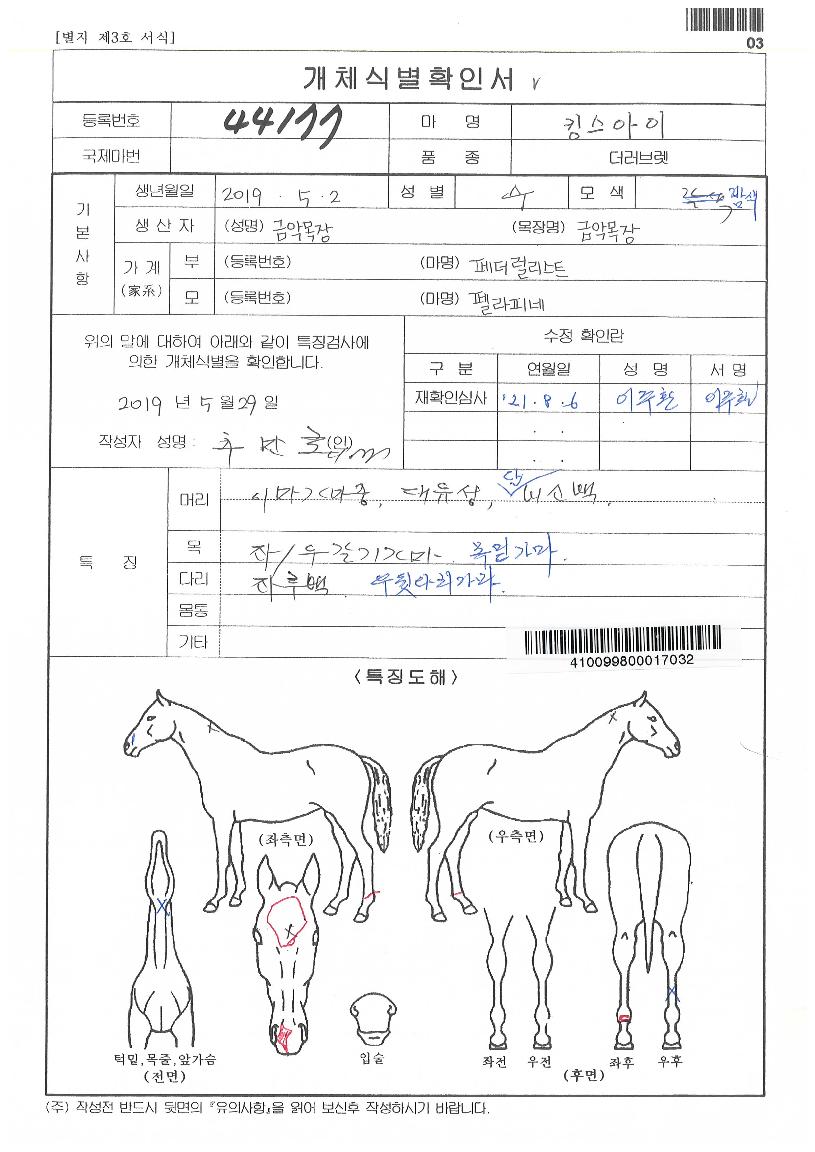 [별지 제3호 서식]
03
개체식별확인서 v
등록번호 44177 마 명 킹스아이
국제마번 품 종 더러브렛
기본사항
생년월일 2019 . 5 . 2 성 별 수 모 색 갈색
생 산 자 (성명) 금악목장 (목장명) 금악목장
가 계 (家系) 부 (등록번호) (마명) 페더럴리스트
모 (등록번호) (마명) 펠라피네
위의 말에 대하여 아래와 같이 특징검사에
의한 개체식별을 확인합니다.
2019 년 5 월 29 일
작성자 성명 : (인)
수정 확인란
구 분 연월일 성 명 서 명
재확인심사 '21 . 8 . 6 이주환 이주환
. .
. .
특 징
머리 이마가마중, 대유성, 단 비소백.
목 좌/우갈기가마. 목밑가마.
다리 좌후백 우뒷다리가마.
몸통
기타
410099800017032
<특징도해>
(좌측면) (우측면)
턱밑,목줄,앞가슴
(전면)
입술
좌전 우전 좌후 우후
(후면)
(주) 작성전 반드시 뒷면의 『유의사항』을 읽어 보신후 작성하시기 바랍니다.